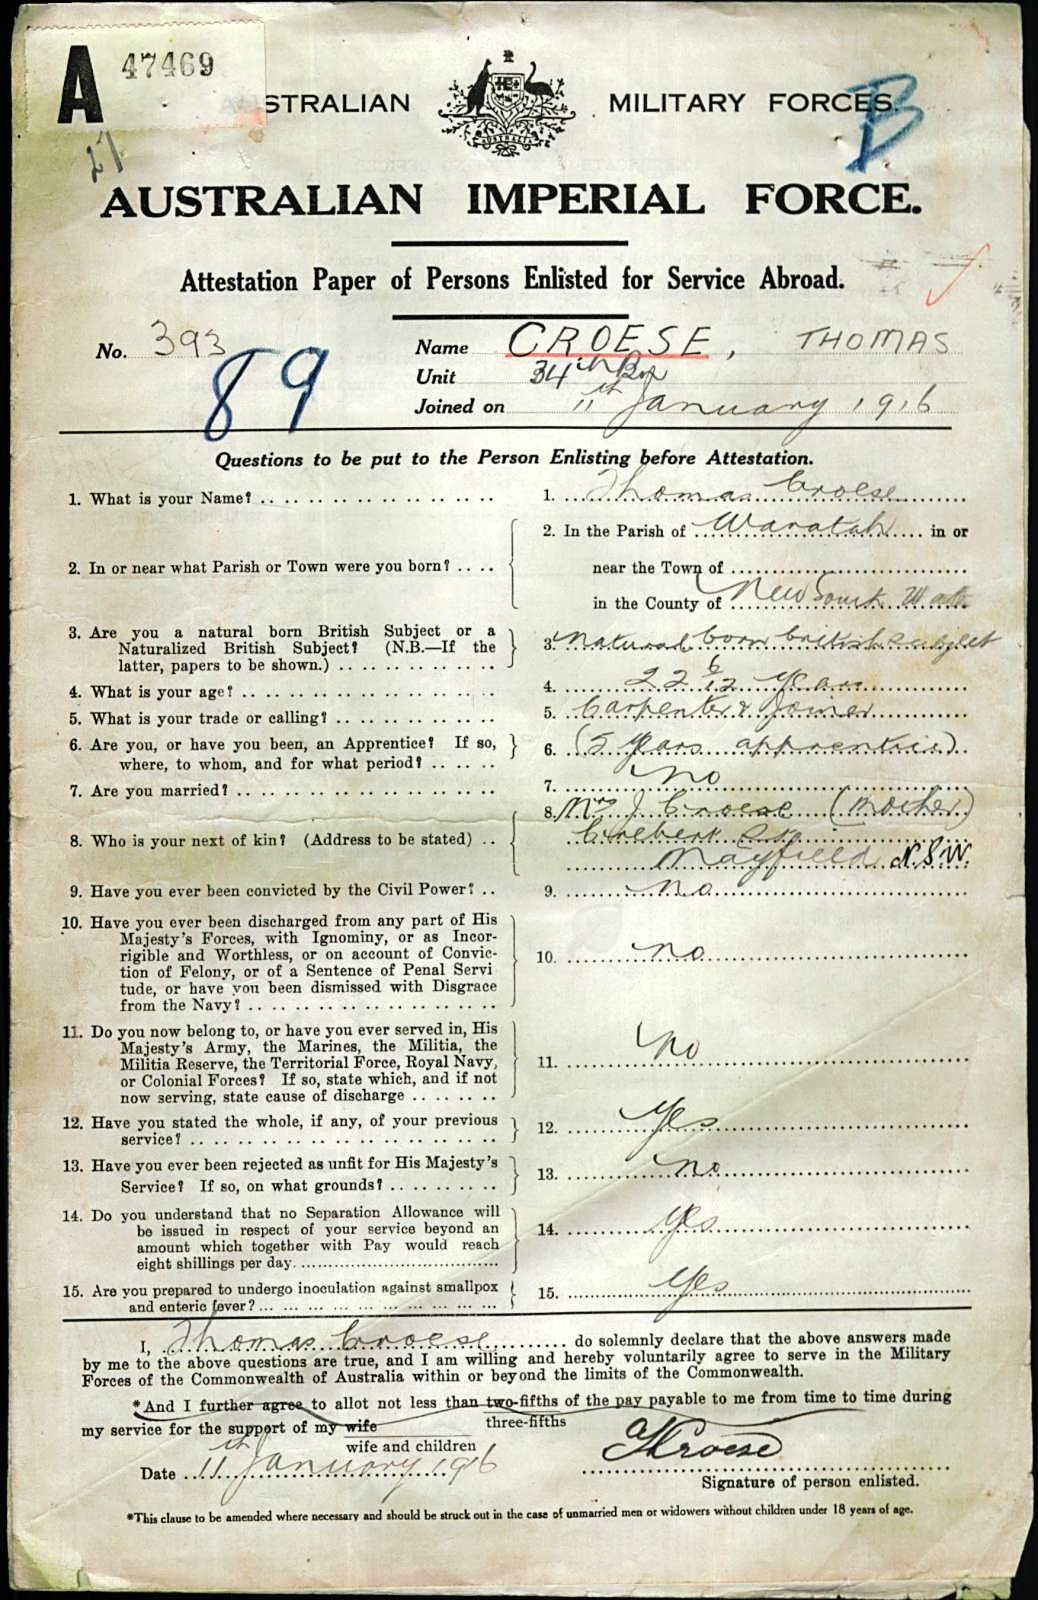 A 47469
STRALIAN MILITARY FORCES.
AUSTRALIA
B
27
AUSTRALIAN IMPERIAL FORCE.
Attestation Paper of Persons Enlisted for Service Abroad.
No. 393
89
Name CROESE, THOMAS
Unit 34th Bn
Joined on 11th January 1916
Questions to be put to the Person Enlisting before Attestation.
1. What is your Name? 1. Thomas Croese
2. In or near what Parish or Town were you born? 2. In the Parish of Waratah in or
near the Town of
in the County of New South Wales
3. Are you a natural born British Subject or a
Naturalized British Subject? (N.B.—If the
latter, papers to be shown.) 3. Natural born british subject
4. What is your age? 4. 22 6/12 years
5. What is your trade or calling? 5. Carpenter & Joiner
6. Are you, or have you been, an Apprentice? If so,
where, to whom, and for what period? 6. (5 years apprentice)
7. Are you married? 7. no
8. Who is your next of kin? (Address to be stated) 8. Mrs J. Croese (Mother)
Crebert St
Mayfield N.S.W.
9. Have you ever been convicted by the Civil Power? 9. no
10. Have you ever been discharged from any part of His
Majesty's Forces, with Ignominy, or as Incor-
rigible and Worthless, or on account of Convic-
tion of Felony, or of a Sentence of Penal Servi
tude, or have you been dismissed with Disgrace
from the Navy? 10. no
11. Do you now belong to, or have you ever served in, His
Majesty's Army, the Marines, the Militia, the
Militia Reserve, the Territorial Force, Royal Navy,
or Colonial Forces? If so, state which, and if not
now serving, state cause of discharge 11. no
12. Have you stated the whole, if any, of your previous
service? 12. Yes
13. Have you ever been rejected as unfit for His Majesty's
Service? If so, on what grounds? 13. no
14. Do you understand that no Separation Allowance will
be issued in respect of your service beyond an
amount which together with Pay would reach
eight shillings per day. 14. Yes
15. Are you prepared to undergo inoculation against smallpox
and enteric fever? 15. Yes
I, Thomas Croese do solemnly declare that the above answers made
by me to the above questions are true, and I am willing and hereby voluntarily agree to serve in the Military
Forces of the Commonwealth of Australia within or beyond the limits of the Commonwealth.
*And I further agree to allot not less than two-fifths of the pay payable to me from time to time during
three-fifths
my service for the support of my wife
wife and children
Date 11th January 1916
TCroese
Signature of person enlisted.
*This clause to be amended where necessary and should be struck out in the case of unmarried men or widowers without children under 18 years of age.